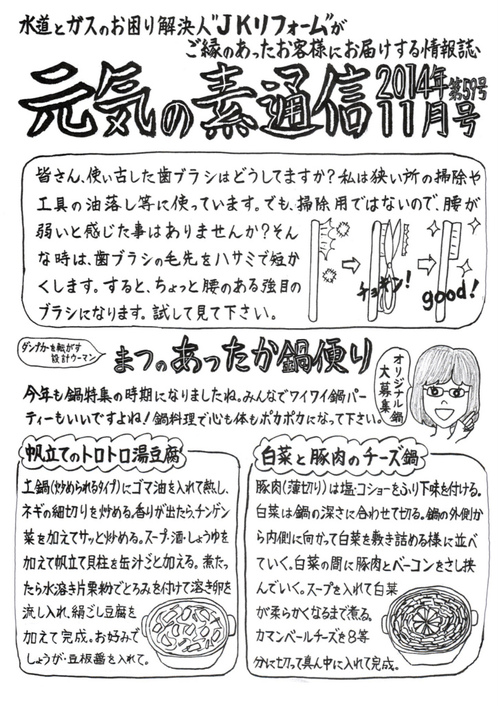 水道とガスのお困り解決人"JKリフォーム"が
ご縁のあったお客様にお届けする情報誌
元気の素通信
2014年
11月号
第57号
皆さん、使い古した歯ブラシはどうしてますか?私は狭い所の掃除や
工具の油落し等に使っています。でも、掃除用ではないので、腰が
弱いと感じた事はありませんか?そん
な時は、歯ブラシの毛先をハサミで短か
くします。すると、ちょっと腰のある強目の
ブラシになります。試して見て下さい。
チョキン!
good!
ダンプカーを転がす
設計ウーマン
まつのあったか鍋便り
オリジナル鍋
大募集
今年も鍋特集の時期になりましたね。みんなでワイワイ鍋パー
ティーもいいですよね!鍋料理で心も体もポカポカになって下さい。
帆立てのトロトロ湯豆腐
土鍋(炒められるタイプ)にゴマ油を入れて熱し、
ネギの細切りを炒める。香りが出たら、チンゲン
菜を加えてサッと炒める。スープ・酒・しょうゆを
加えて帆立て貝柱を缶汁ごと加える。煮たっ
たら水溶き片栗粉でとろみを付けて溶き卵を
流し入れ、絹ごし豆腐を
加えて完成。お好みで
しょうが・豆板醤を入れて。
白菜と豚肉のチーズ鍋
豚肉(薄切り)は塩・コショーをふり下味を付ける。
白菜は鍋の深さに合わせて切る。鍋の外側か
ら内側に向かって白菜を敷き詰める様に並べ
ていく。白菜の間に豚肉とベーコンをさし挟
んでいく。スープを入れて白菜
が柔らかくなるまで煮る。
カマンベールチーズを8等
分に切って真ん中に入れて完成。